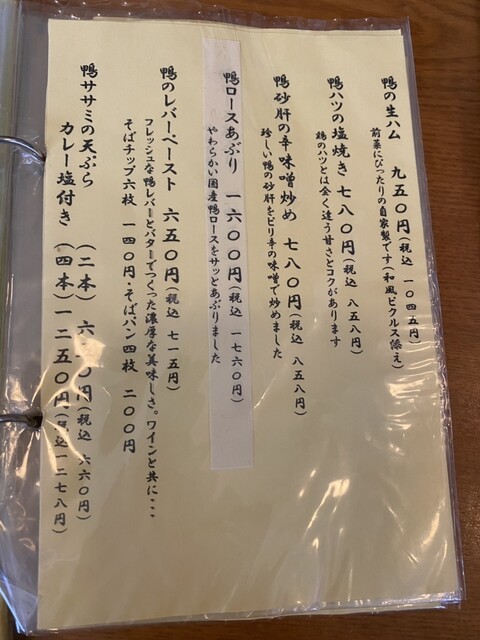 鴨の生ハム　九五〇円（税込　一〇四五円）
前菜にぴったりの自家製です（和風ピクルス添え）
鴨ハツの塩焼き　七八〇円（税込　八五八円）
鶏のハツとは全く違う甘さとコクがあります
鴨砂肝の辛味噌炒め　七八〇円（税込　八五八円）
珍しい鴨の砂肝をピリ辛の味噌で炒めました
鴨ロースあぶり　一六〇〇円（税込　一七六〇円）
やわらかい国産鴨ロースをサッとあぶりました
鴨のレバーペースト　六五〇円（税込　七一五円）
フレッシュな鴨レバーとバターでつくった濃厚な美味しさ。ワインと共に・・・
そばチップ六枚　一四〇円・そばパン四枚　二〇〇円
鴨ササミの天ぷら　（二本）六　〇円（税込　六六〇円）
カレー塩付き　（四本）一二五〇円（税込一二七八円）